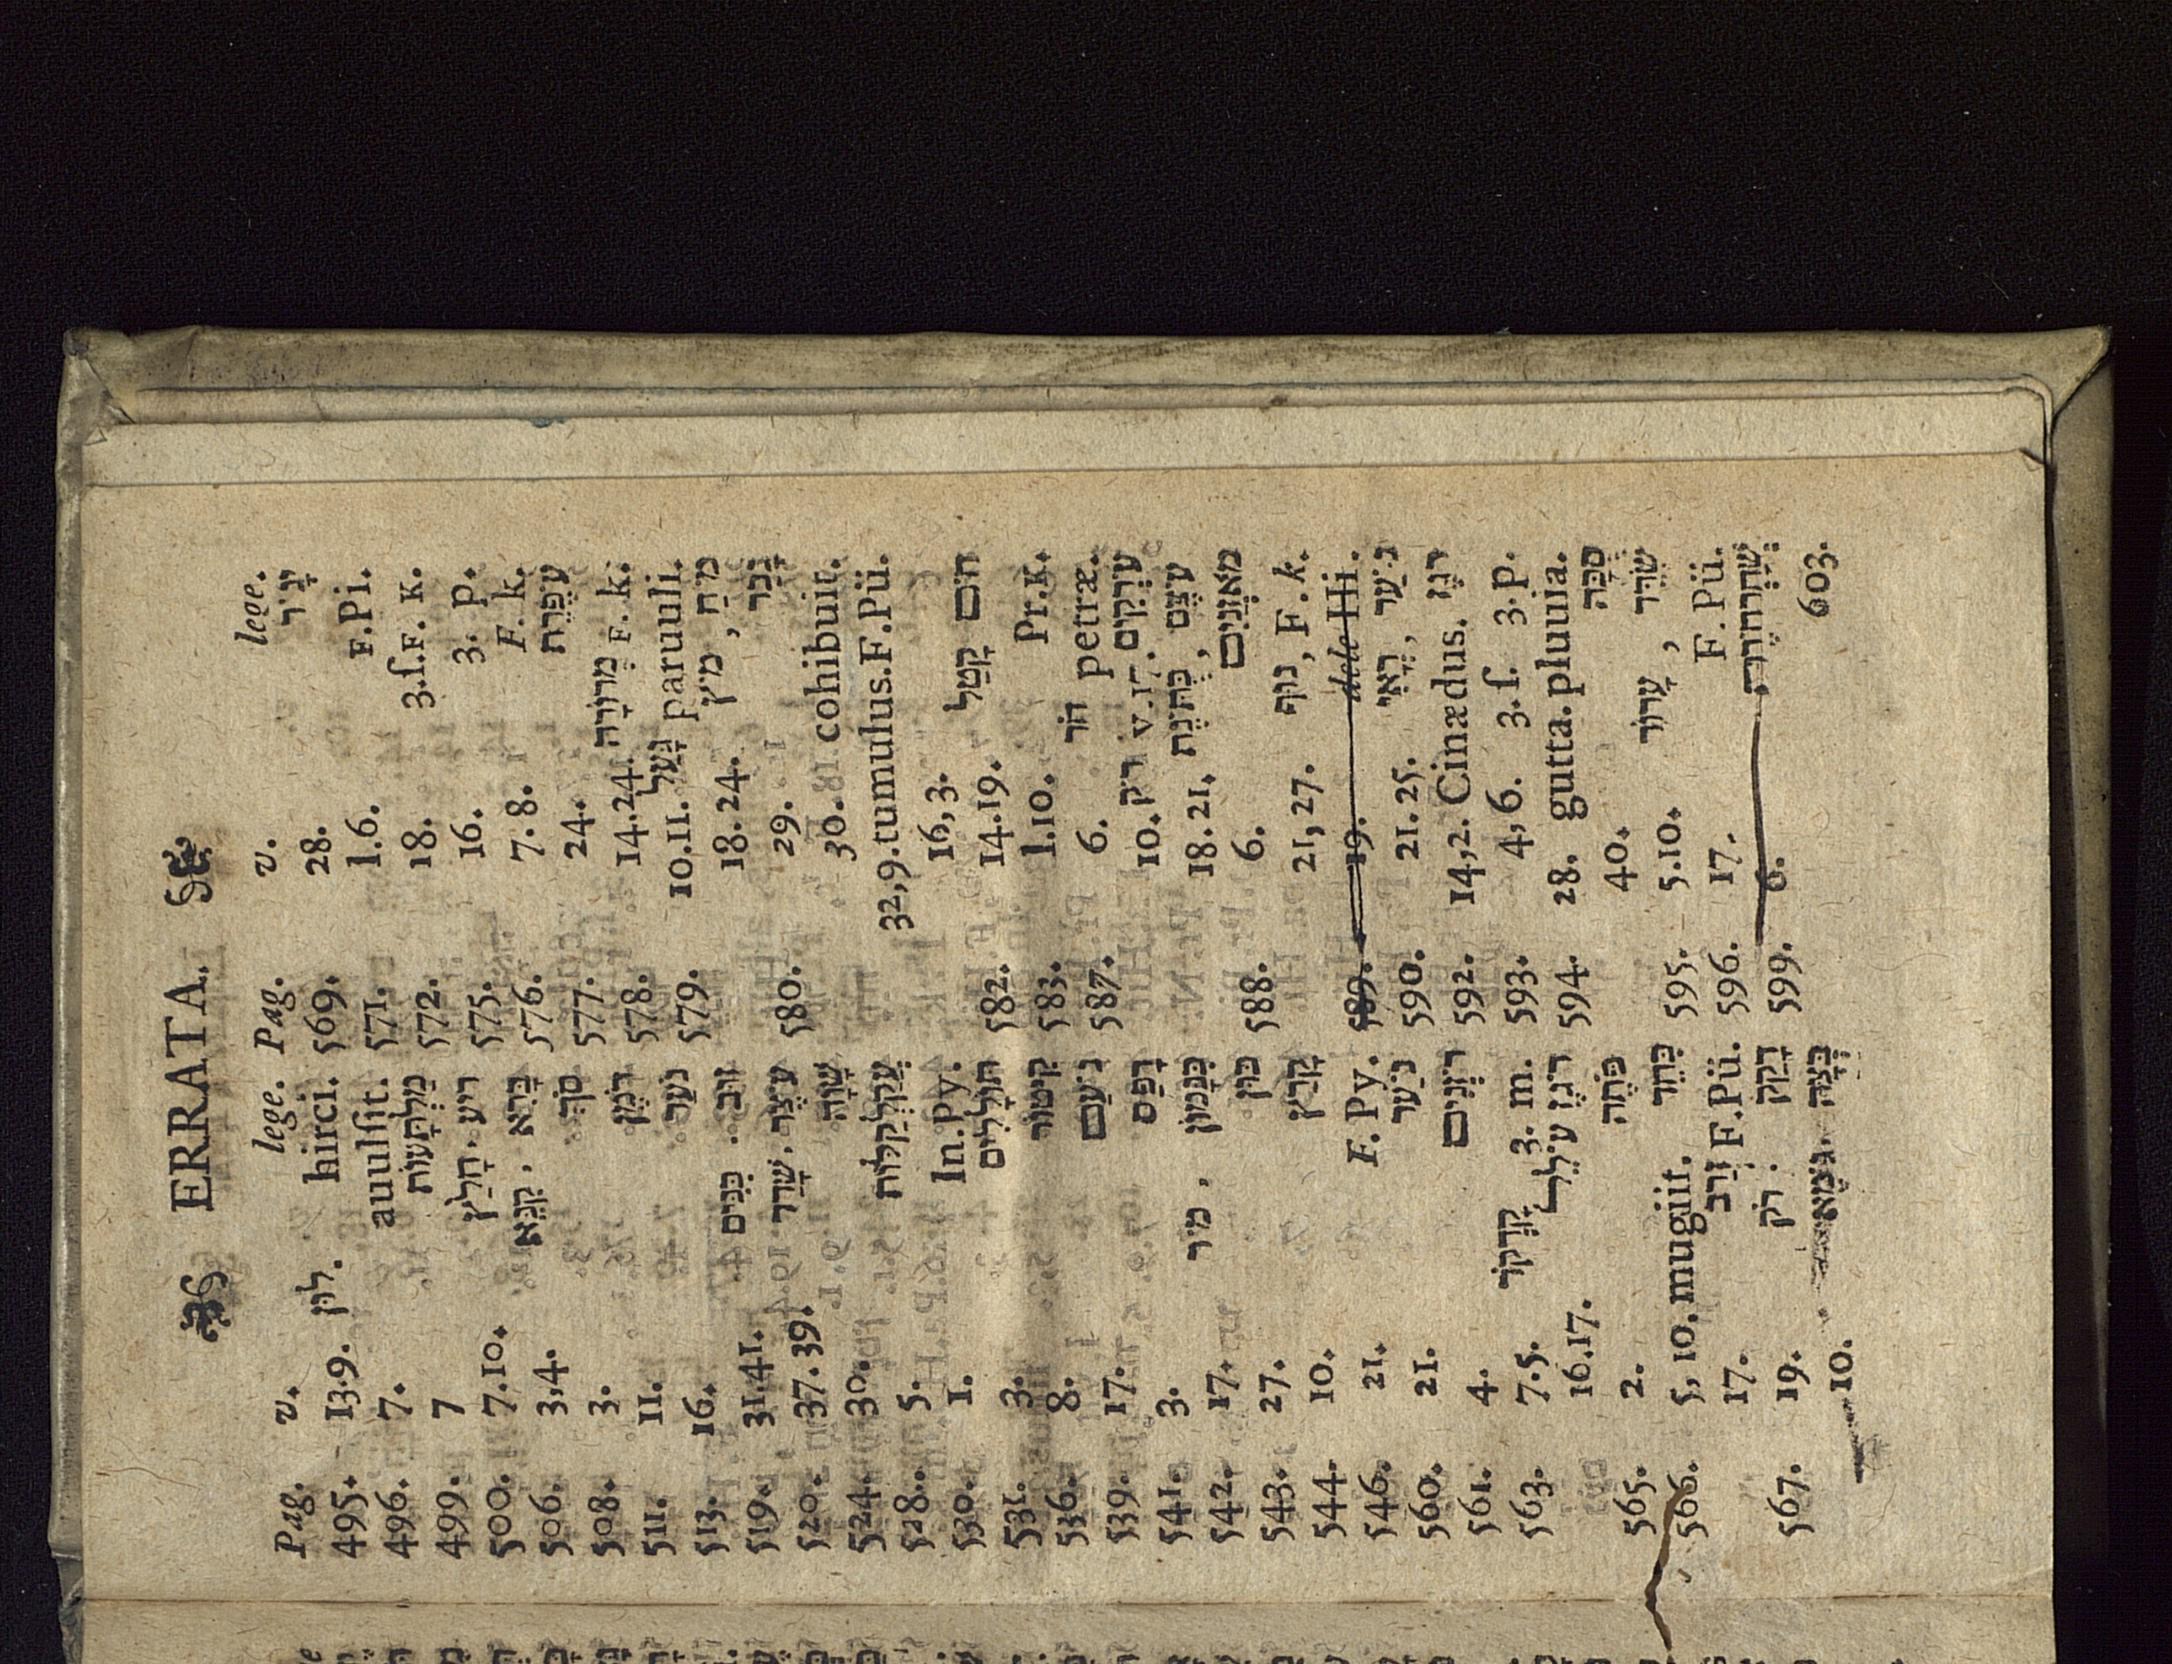 ERRATA.
Pag. v. lege.
495. 13.9. לון. hirci.
496. 7. auulſit.
499. 7 מַלְתָּעוֹת
500. 7.10. ריע. חָלַץ
506. 3,4. קִנֵּא. בָּרִא
508. 3. סֹךְ
511. 11. דּוֹמֶן
513. 16. נֹעַר
519. 31.41. כִּנִּים. זוּב
520. 37.39. שָׁרַר. עֹצֶר
524. 30. שָׁוָה
528. 5. עֲקַלְקַלּוֹת
530. 1. In.Py.
531. 3. תּוֹלָלִים
536. 8. קִיטוֹר
539. 17. נֹעַם
541. 3. דָפַס
542. 17. מִיר, כַּנָּמוֹן
543. 27. כּוּן
544. 10. קָרַץ
546. 21. F. Py.
560. 21. נֹעַר
561. 4. רֹזְנִים
563. 7.5. קַרְקֹר 3. m.
16.17. עִילֵר רֹגֶז
565. 2. פֹּתֶה
566. 5, 10. mugiit. כַּחֵד
17. זָרַב F.Pü.
567. 19. רֹק. דָקַק
10. גֹּמֶא. בִּצָּה
Pag. v. lege.
569. 28. יָגֹר
571. 1.6. F.Pi.
572. 18. 3.ſ.F. K.
575. 16. 3. p.
576. 7.8. F. k.
577. 24. עֹפֶרֶת
578. 14.24. מְרוֹרָה F. k.
579. 10.11. גָּעַל paruuli.
18.24. מֹיץ, מֹחַ
29. נָכַר
580. 30. cohibuit.
32,9. tumulus.F.Pü.
16,3. קָטַל חוֹם
582. 14.19.
583. 1.10. Pr.K.
587. 6. הוֹר petræ.
10. רֹק v.17. עֹרְקִים
18.21. כֻּתֹּנֶת, עֹצֶם
588. 6. מֹאזְנַיִם
21,27. נוּף, F. k.
589. 19. dele Hi.
590. 21.25. רֳאִי, נֹעַר
592. 14,2. Cinædus. רֹגֶז
593. 4,6. 3.ſ. 3.p.
594. 28. gutta. pluuia.
40. סֻכָּה
595. 5.10. עָרוֹד, שֹׁרֶר
596. 17. F. Pü.
599. 6. שְׁחַרְחֹרֶת
603.